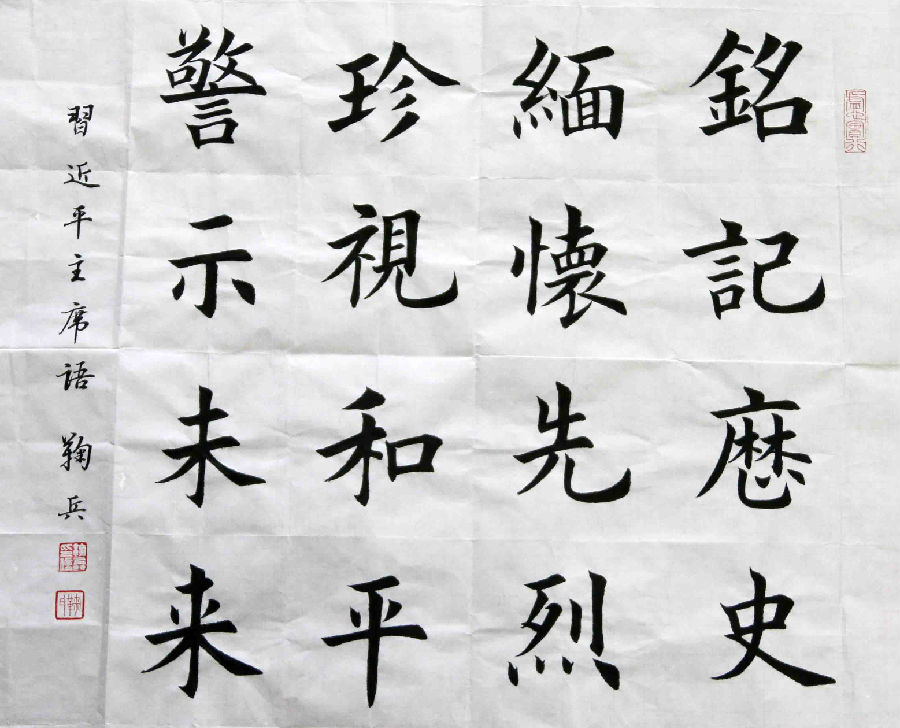 銘記歷史
緬懷先烈
珍視和平
警示未来
習近平主席語 鞠兵